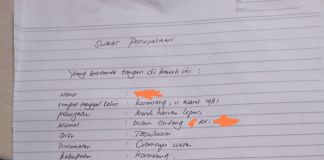 SURAT PERNYATAAN
Yang bertanda tangan di bawah ini :
Nama :
tempat tanggal lahir : Karawang, 11 Maret 1981
pekerjaan : Buruh harian lepas
Alamat : Dusun RT.
Desa :
Kecamatan : Cilamaya wetan
Kabupaten : Karawang